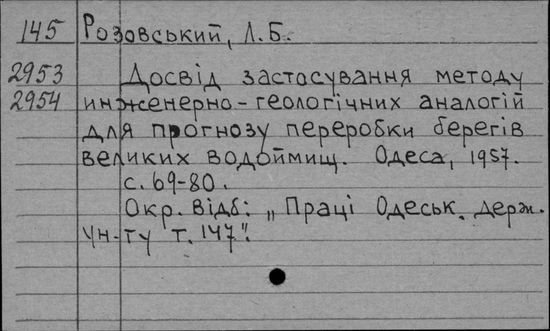 145 Розовський, Л.Б.
2953 Досвід застосування методу
2954 инженерно-геологічних аналогій
для прогнозу переробки берегів
великих водоймищ. Одеса, 1957.
с. 69-80.
Окр. відб: „Праці Одеськ. держ.
ун-ту т. 147".